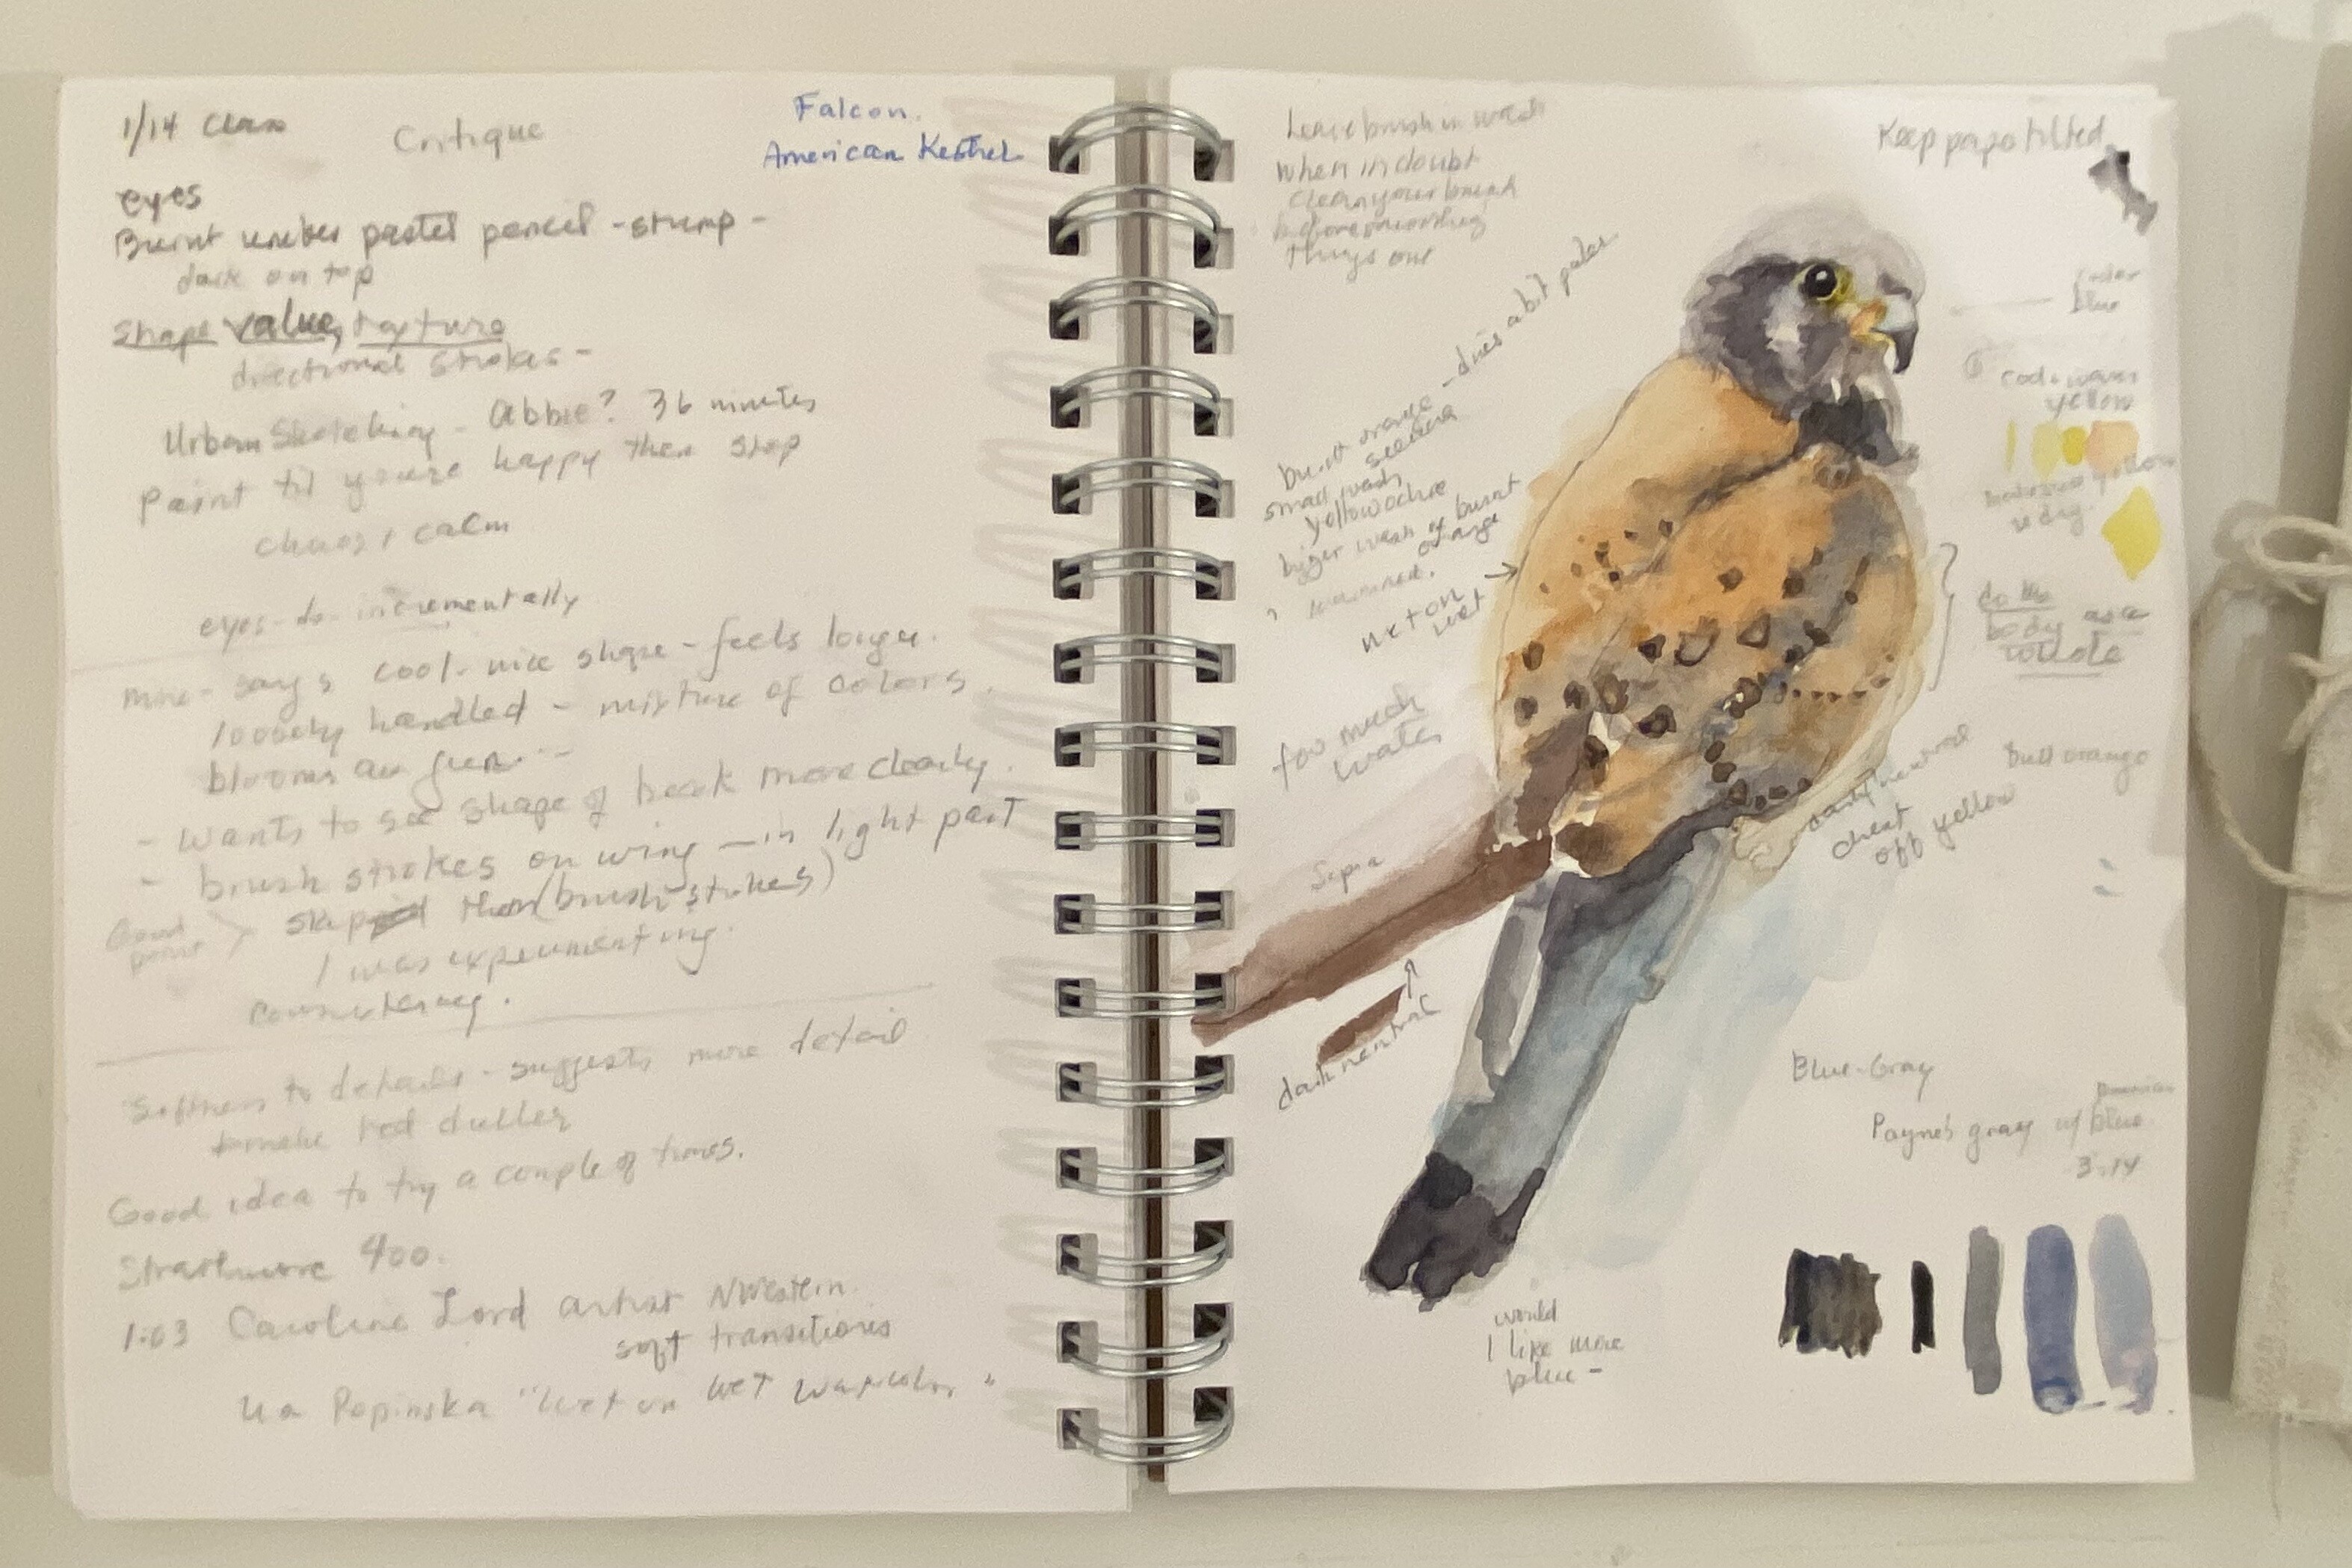 1/14 Class
Critique
Falcon.
American Kestrel
eyes
Burnt umber pastel pencil - stump -
dark on top
Shape value, texture
directional strokes -
Urban Sketching - Abbie? 36 minutes
Paint til you're happy then stop
chaos, calm
eyes - do incrementally
mine - says cool - nice shape - feels longer.
loosely handled - mixture of colors.
blooms are fun --
- Wants to see shape of beak more clearly.
- brush strokes on wing - in light part
Good point > skip them (brush strokes)
I was experimenting.
Softness to details - suggests more detail
make red duller
Good idea to try a couple of times.
Strathmore 400.
1:03 Caroline Lord artist NWestern
soft transitions
Popinska "Wet on Wet Watercolor"
Leave brush in wash
when in doubt
clean your brush
before smoothing
things out
Keep paper tilted
burnt orange - dries a bit paler
sienna
small wash
yellow ochre
bigger wash of burnt
orange
wet on
wet
too much
water
Sepia
dark neutral
blue
yellow
do the
body as a
whole
Dull orange
chest
off yellow
Blue-Gray
Payne's gray w/ blue
3.14
would
I like more
blue -